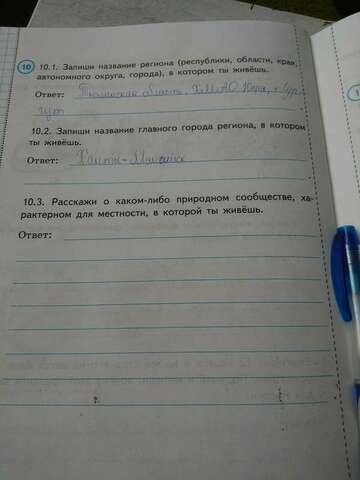 10 10.1. Запиши название региона (республики, области, края,
автономного округа, города), в котором ты живёшь.
Ответ: Тюменская область, ХМАО Югра, г. Сур-
гут
10.2. Запиши название главного города региона, в котором
ты живёшь.
Ответ: Ханты-Мансийск
10.3. Расскажи о каком-либо природном сообществе, ха-
рактерном для местности, в которой ты живёшь.
Ответ: